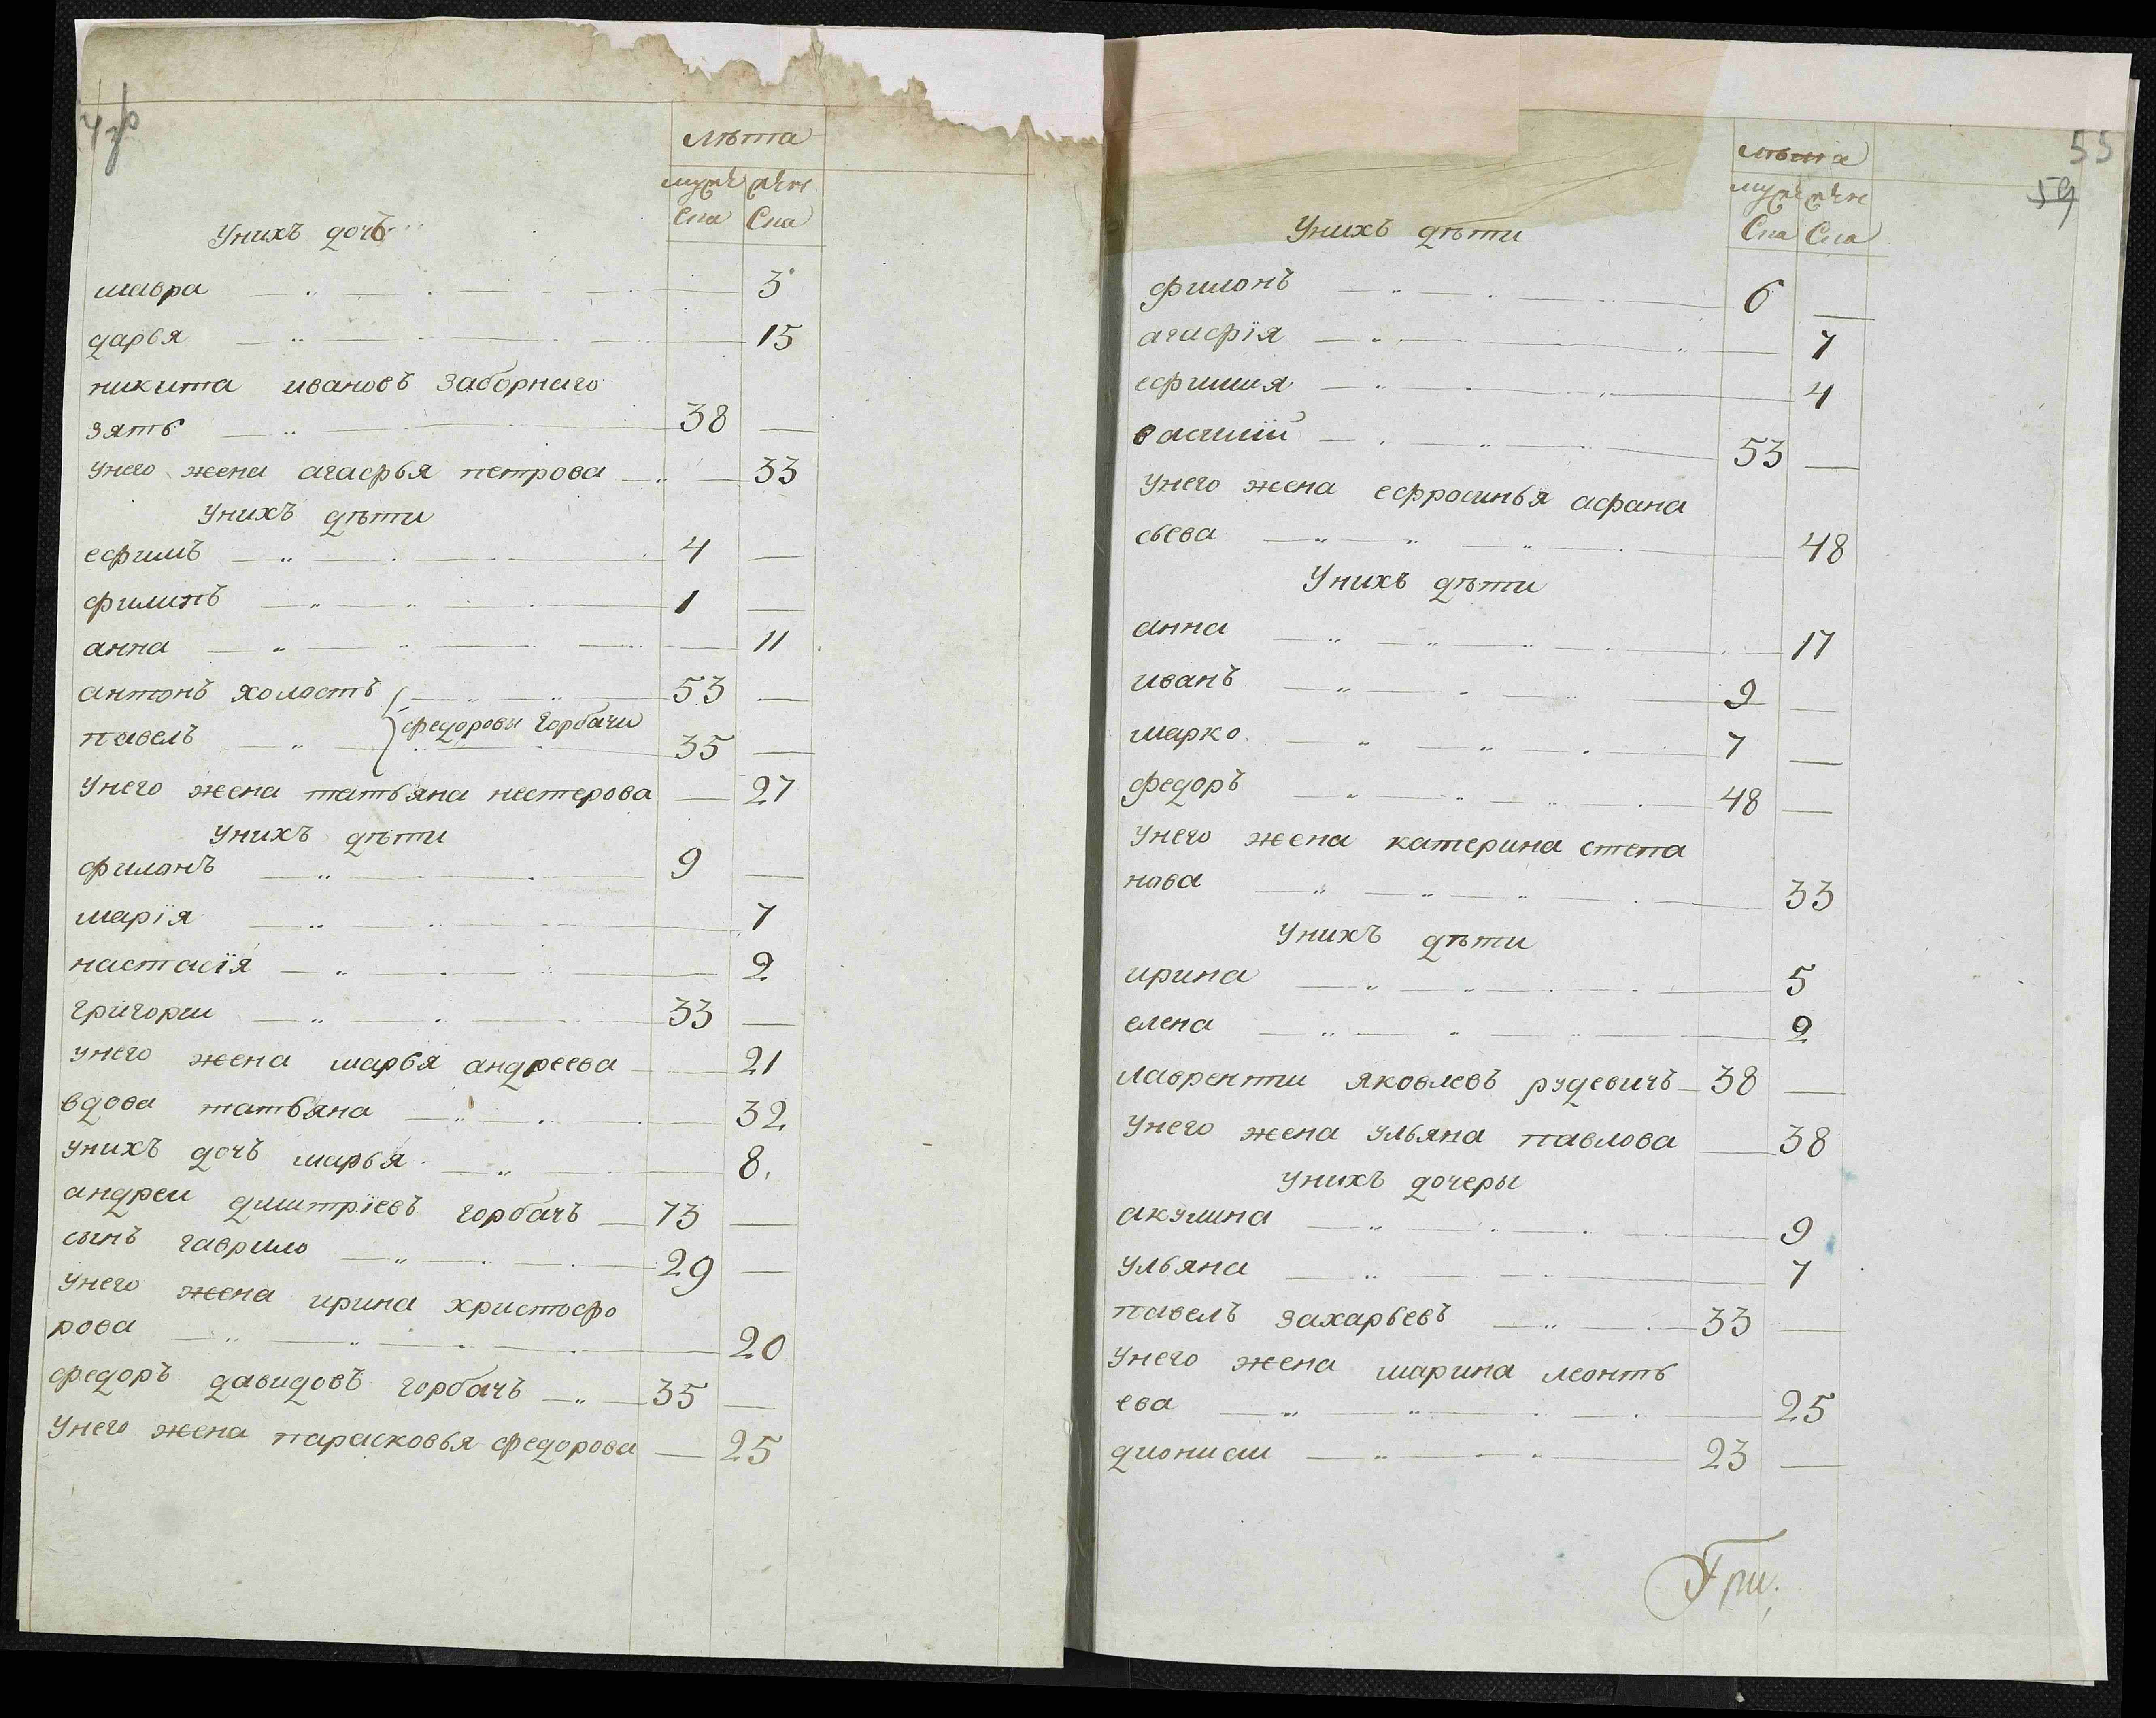 лѣта
муж жен
Ска Ска
Унихъ дочь
мавра 3
дарья 15
никита ивановъ заборнаго
зять 38
унего жена агафья петрова 33
Унихъ дѣти
ефимъ 4
филипъ 1
анна 11
антонъ холостъ 53
федоровы горбачи
павелъ 35
Унего жена татьяна нестерова 27
Унихъ дѣти
филонъ 9
марїя 7
настасїя 2
григории 33
унего жена марья андреева 21
вдова татьяна 32
унихъ дочъ марья 8
андреи дмитрїевъ горбачъ 73
сынъ гаврило 29
Унего жена ирина христофо
рова 20
федоръ давидовъ горбачъ 35
Унего жена парасковья федорова 25
55
59
лѣта
муж жен
Ска Ска
Унихъ дѣти
филонъ 6
агафїя 7
ефимия 4
василий 53
Унего жена ефросинья афана
сьева 48
Унихъ дѣти
анна 17
иванъ 9
марко 7
федоръ 48
Унего жена катерина степа
нова 33
Унихъ дѣти
ирина 5
елена 2
лаврентии яковлевъ рудевичъ 38
Унего жена ульяна павлова 38
унихъ дочеры
акулина 9
ульяна 7
павелъ захарьевъ 33
Унего жена марина леонть
ева 25
дионисии 23
Гри.